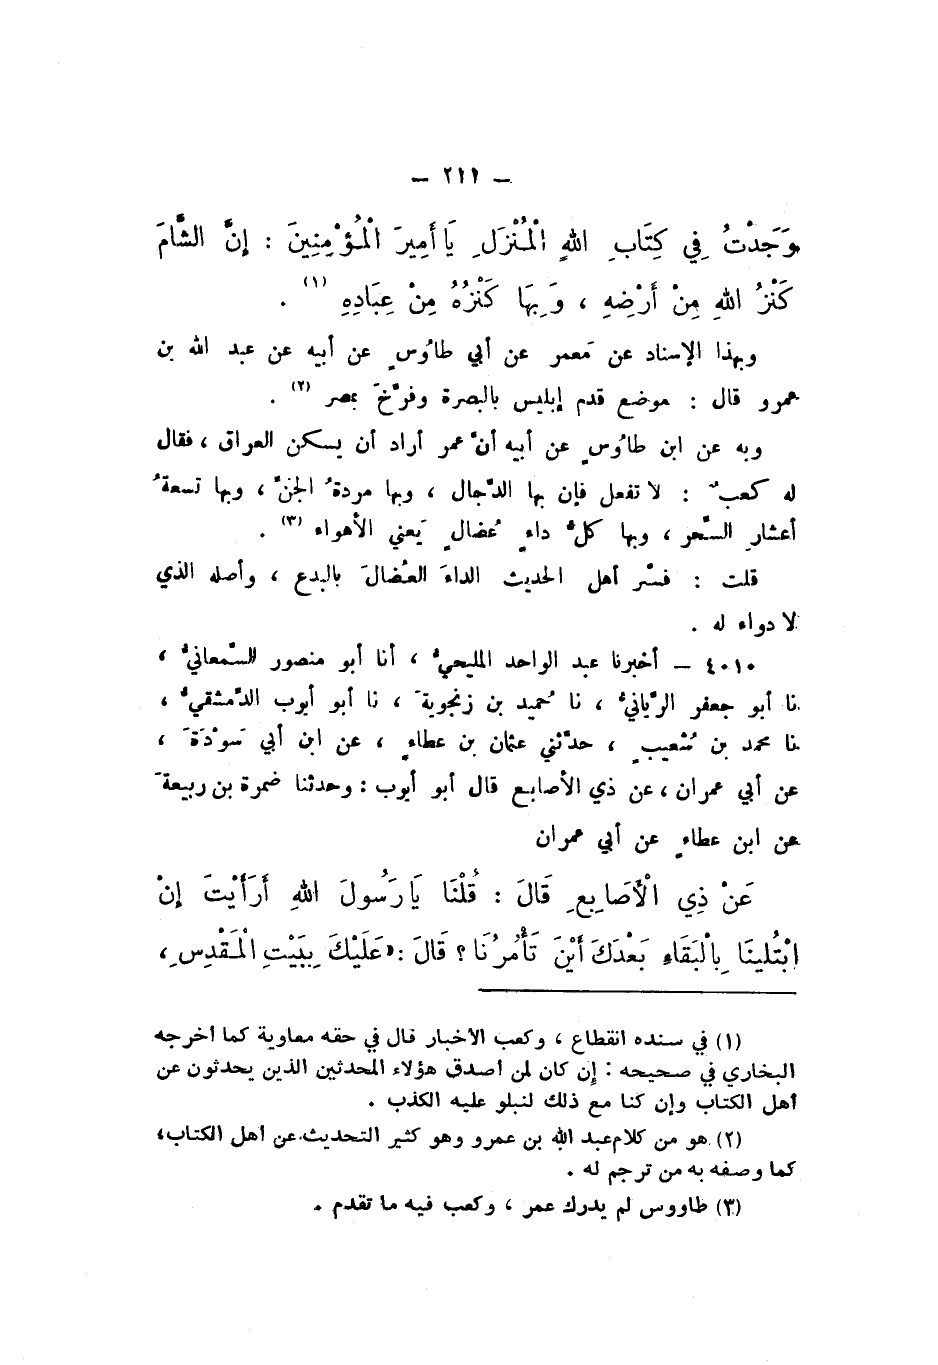 – ٢١١ –
وَجَدْتُ فِي كِتَابِ اللهِ الْمُنْزَلِ يَا أَمِيرَ الْمُؤْمِنِينَ : إنَّ الشَّامَ
كَنْزُ اللهِ مِنْ أَرْضِهِ ، وَبِهَا كَنْزُهُ مِنْ عِبَادِهِ (١) .
وبهذا الإسناد عن مَعمر عن أبي طاوُسٍ عن أبيه عن عبد الله بن
عمرو قال : موضع قدم إبليس بالبصرة وفرَّخَ بمصر (٢) .
وبه عن ابن طاوُسٍ عن أبيه أنَّ عمر أراد أن يسكن العراق ، فقال
له كعبٌ : لا تفعل فإن بها الدَّجال ، وبها مردةُ الجنِّ ، وبها تسعةُ
أعشارِ السِّحر ، وبها كلُّ داءٍ عُضالٍ يَعني الأهواء (٣) .
قلت : فسَّر أهل الحديث الداءَ العُضالَ بالبدع ، وأصله الذي
لا دواء له .
٤٠١٠ – أخبرنا عبد الواحد المليحيُّ ، أنا أبو منصور السَّمعانيُّ ،
نا أبو جعفر الرَّيانيُّ ، نا حُميد بن زنجويةَ ، نا أبو أيوب الدِّمشقيُّ ،
نا محمد بن شُعيبٍ ، حدَّثني عثمان بن عطاءٍ ، عن ابن أبي سَوْدَةَ ،
عن أبي عمران ، عن ذي الأصابع قال أبو أيوب : وحدثنا ضمرة بن ربيعةَ
عن ابن عطاءٍ عن أبي عمران
عَنْ ذِي الْأَصَابِعِ قَالَ : قُلْنَا يَا رَسُولَ اللهِ أَرَأَيْتَ إنْ
ابْتُلينَا بِالْبَقَاءِ بَعْدَكَ أَيْنَ تَأْمُرُنَا ؟ قَالَ : «عَلَيْكَ بِبَيْتِ الْمَقْدِسِ ،
(١) في سنده انقطاع ، وكعب الأخبار قال في حقه معاوية كما أخرجه
البخاري في صحيحه : إن كان لمن أصدق هؤلاء المحدثين الذين يحدثون عن
أهل الكتاب وإن كنا مع ذلك لنبلو عليه الكذب .
(٢) هو من كلام عبد الله بن عمرو وهو كثير التحديث عن أهل الكتاب ،
كما وصفه به من ترجم له .
(٣) طاووس لم يدرك عمر ، وكعب فيه ما تقدم .